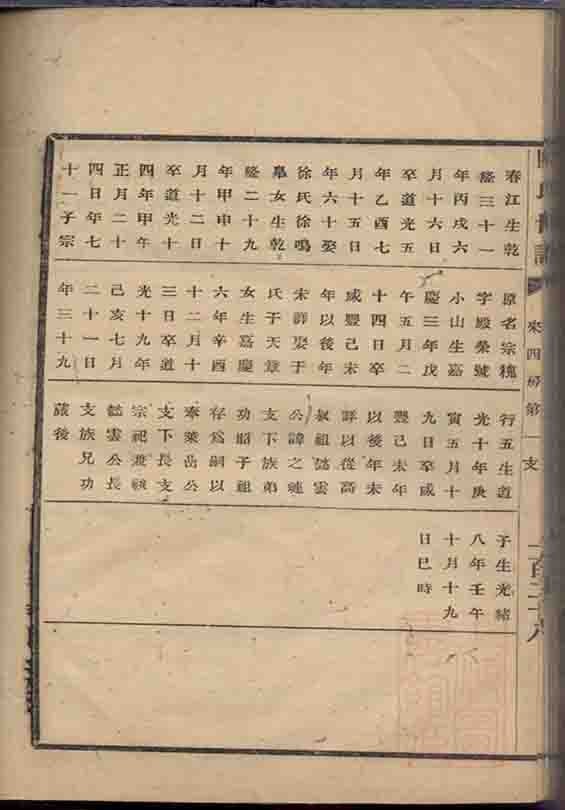 來四房第一支
春江生乾
隆三十一
年丙戌六
月十六日
卒道光五
年乙酉七
月十五日
年六十娶
徐氏徐鳴
皐女生乾
隆二十九
年甲申十
月十二日
卒道光十
四年甲午
正月二十
四日年七
十一子宗
原名宗槐
字殿榮號
小山生嘉
慶三年戊
午五月二
十四日卒
咸豐己未
年以後年
未詳娶于
氏于天章
女生嘉慶
六年辛酉
十二月十
三日卒道
光十九年
己亥七月
二十一日
年三十九
行五生道
光十年庚
寅五月十
九日卒咸
豐己未年
以後年未
詳以從高
叔祖懿雲
公諱之璉
支下族弟
功昭子祖
存爲嗣以
奉萊岳公
支下長支
宗祀兼祧
懿雲公長
支族兄功
箴後
子生光緒
八年壬午
十月十九
日巳時